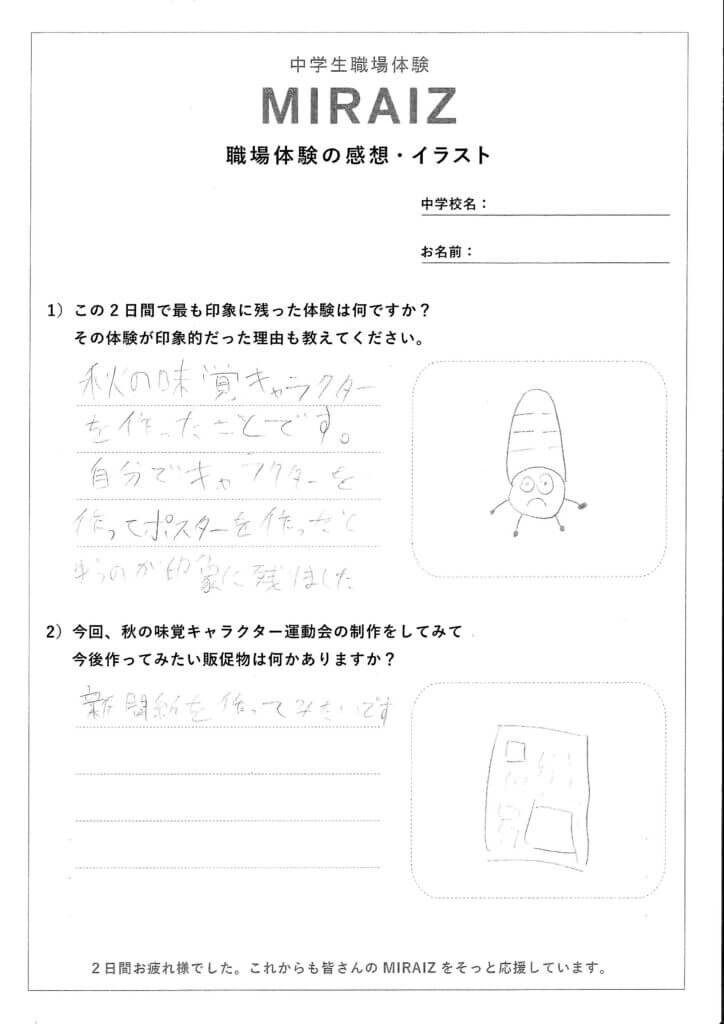 中学生職場体験
MIRAIZ
職場体験の感想・イラスト
中学校名：
お名前：
1）この2日間で最も印象に残った体験は何ですか？
その体験が印象的だった理由も教えてください。
秋の味覚キャラクター
を作ったことです。
自分でキャラクターを
作ってポスターを作ったと
いうのが印象に残りました
2）今回、秋の味覚キャラクター運動会の制作をしてみて
今後作ってみたい販促物は何かありますか？
新聞紙を作ってみたいです
2日間お疲れ様でした。これからも皆さんのMIRAIZをそっと応援しています。